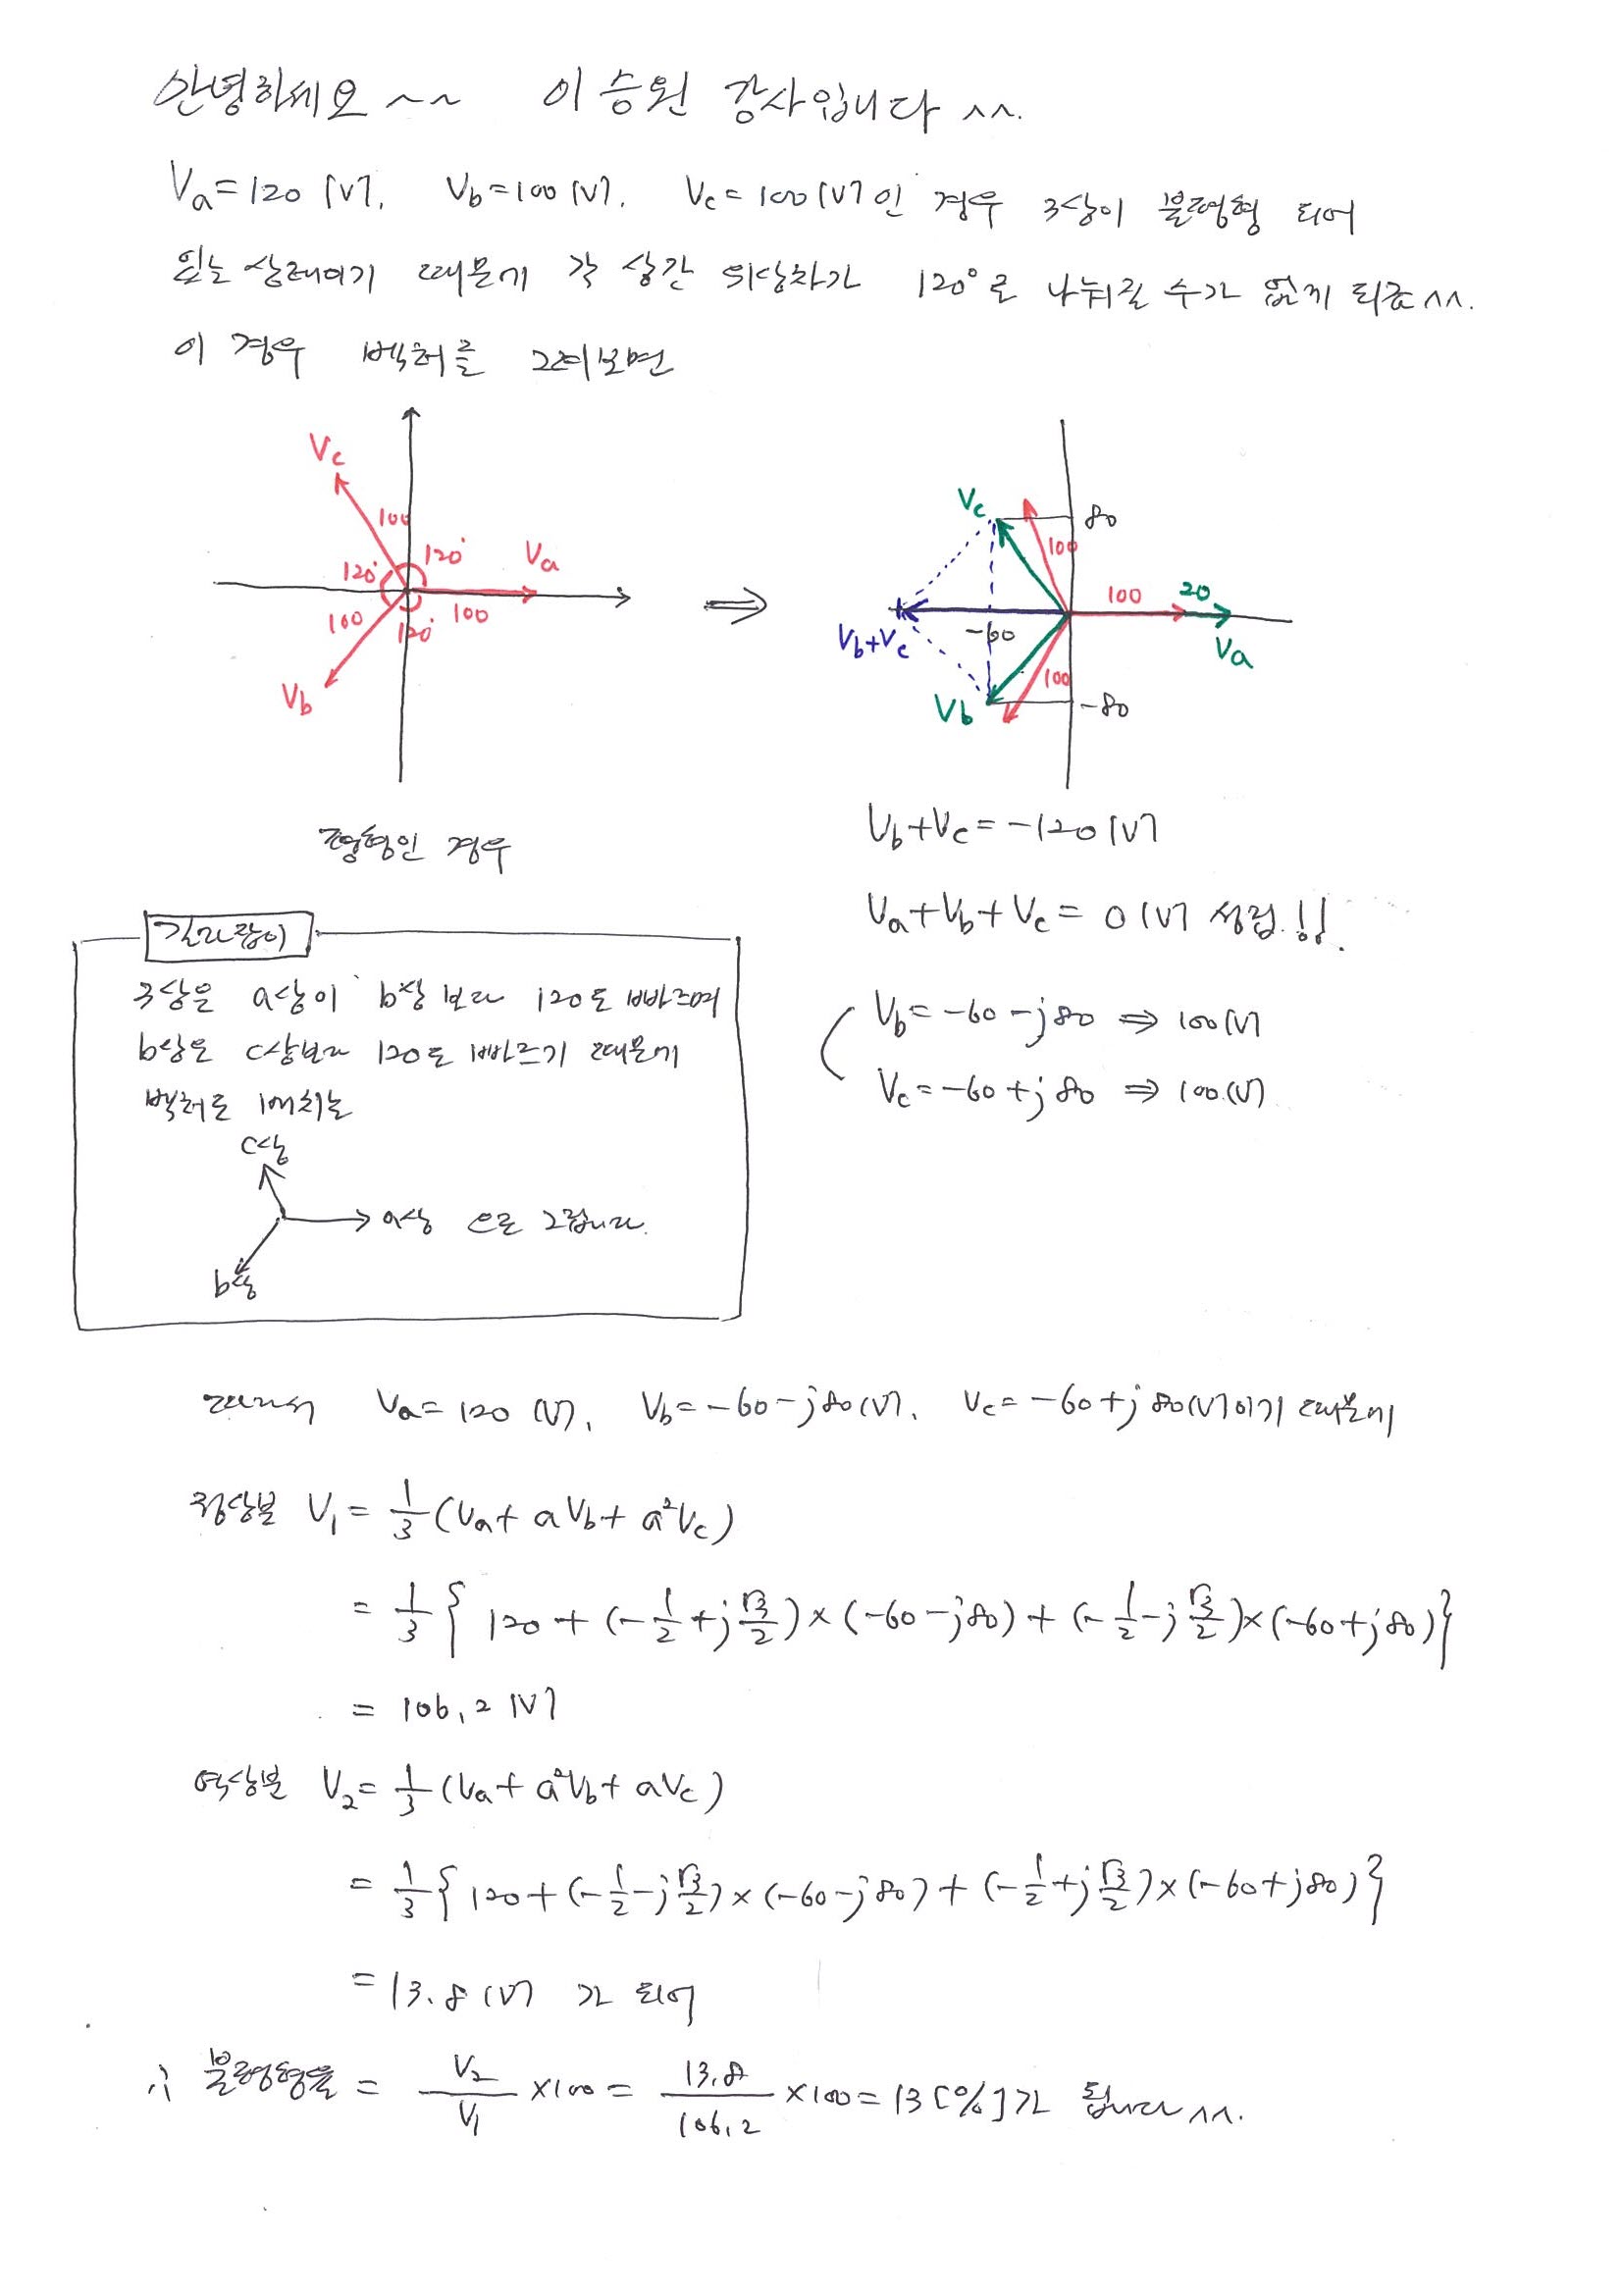 안녕하세요~~ 이승원 강사입니다 ^^.
Va=120 [V], Vb=100 [V], Vc=100 [V]인 경우 3상이 불평형 되어
있는 상태이기 때문에 각 상간 위상차가 120°로 나눠질 수가 없게 되죠^^.
이 경우 벡터를 그려보면
Vc
100
120°
120°
Va
100
100
120°
Vb
평형인 경우
⇒
Vc
80
100
100
20
Va
Vb+Vc
-60
100
Vb
-80
Vb+Vc=-120[V]
Va+Vb+Vc=0[V] 성립!!
Vb=-60-j80 ⇒ 100[V]
Vc=-60+j80 ⇒ 100[V]
길라잡이
3상은 a상이 b상 보다 120도 빠르며
b상은 c상보다 120도 빠르기 때문에
벡터도 배치는
c상
a상 으로 그립니다.
b상
따라서 Va=120 [V], Vb=-60-j80[V], Vc=-60+j80[V]이기 때문에
정상분 V₁=1/3(Va+aVb+a²Vc)
=1/3{120+(-1/2+j√3/2)×(-60-j80)+(-1/2-j√3/2)×(-60+j80)}
=106.2 [V]
역상분 V₂=1/3(Va+a²Vb+aVc)
=1/3{120+(-1/2-j√3/2)×(-60-j80)+(-1/2+j√3/2)×(-60+j80)}
=13.8[V] 가 되어
∴ 불평형률 = V₂/V₁ ×100 = 13.8/106.2 ×100=13[%]가 됩니다^^.